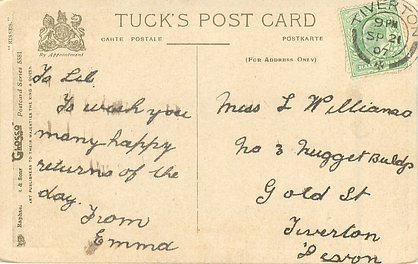 TUCK'S POST CARD
CARTE POSTALE
POSTKARTE
(FOR ADDRESS ONLY)
By Appointment
"KISSES."
Postcard Series 5581
ART PUBLISHERS TO THEIR MAJESTIES THE KING & QUEEN
TIVERTON
9 PM
SP 21
07
To Lil.
To wish you
many happy
returns of the
day.
From
Emma
Miss L Williams
No 3 Nugget Buldgs
Gold St
Tiverton
Devon